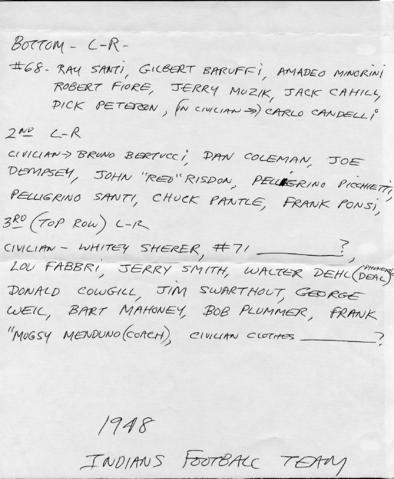 BOTTOM - L-R-
#68- RAY SANTI, GILBERT BARUFFI, AMADEO MINORINI
ROBERT FIORE, JERRY MUZIK, JACK CAHILL,
DICK PETERSON, (IN CIVILIAN →) CARLO CANDELLI
2ND L-R
CIVILIAN → BRUNO BERTUCCI, DAN COLEMAN, JOE
DEMPSEY, JOHN "RED" RISDON, PELLEGRINO PICCHIETTI,
PELLIGRINO SANTI, CHUCK PANTLE, FRANK PONSI,
3RD (TOP ROW) L-R
CIVILIAN - WHITEY SHERER, #71 __________?,
LOU FABBRI, JERRY SMITH, WALTER DEHL (DEAL)
DONALD COWGILL, JIM SWARTHOUT, GEORGE
WEIL, BART MAHONEY, BOB PLUMMER, FRANK
"MUGSY MENDUNO (COACH), CIVILIAN CLOTHES __________?
1948
INDIANS FOOTBALL TEAM